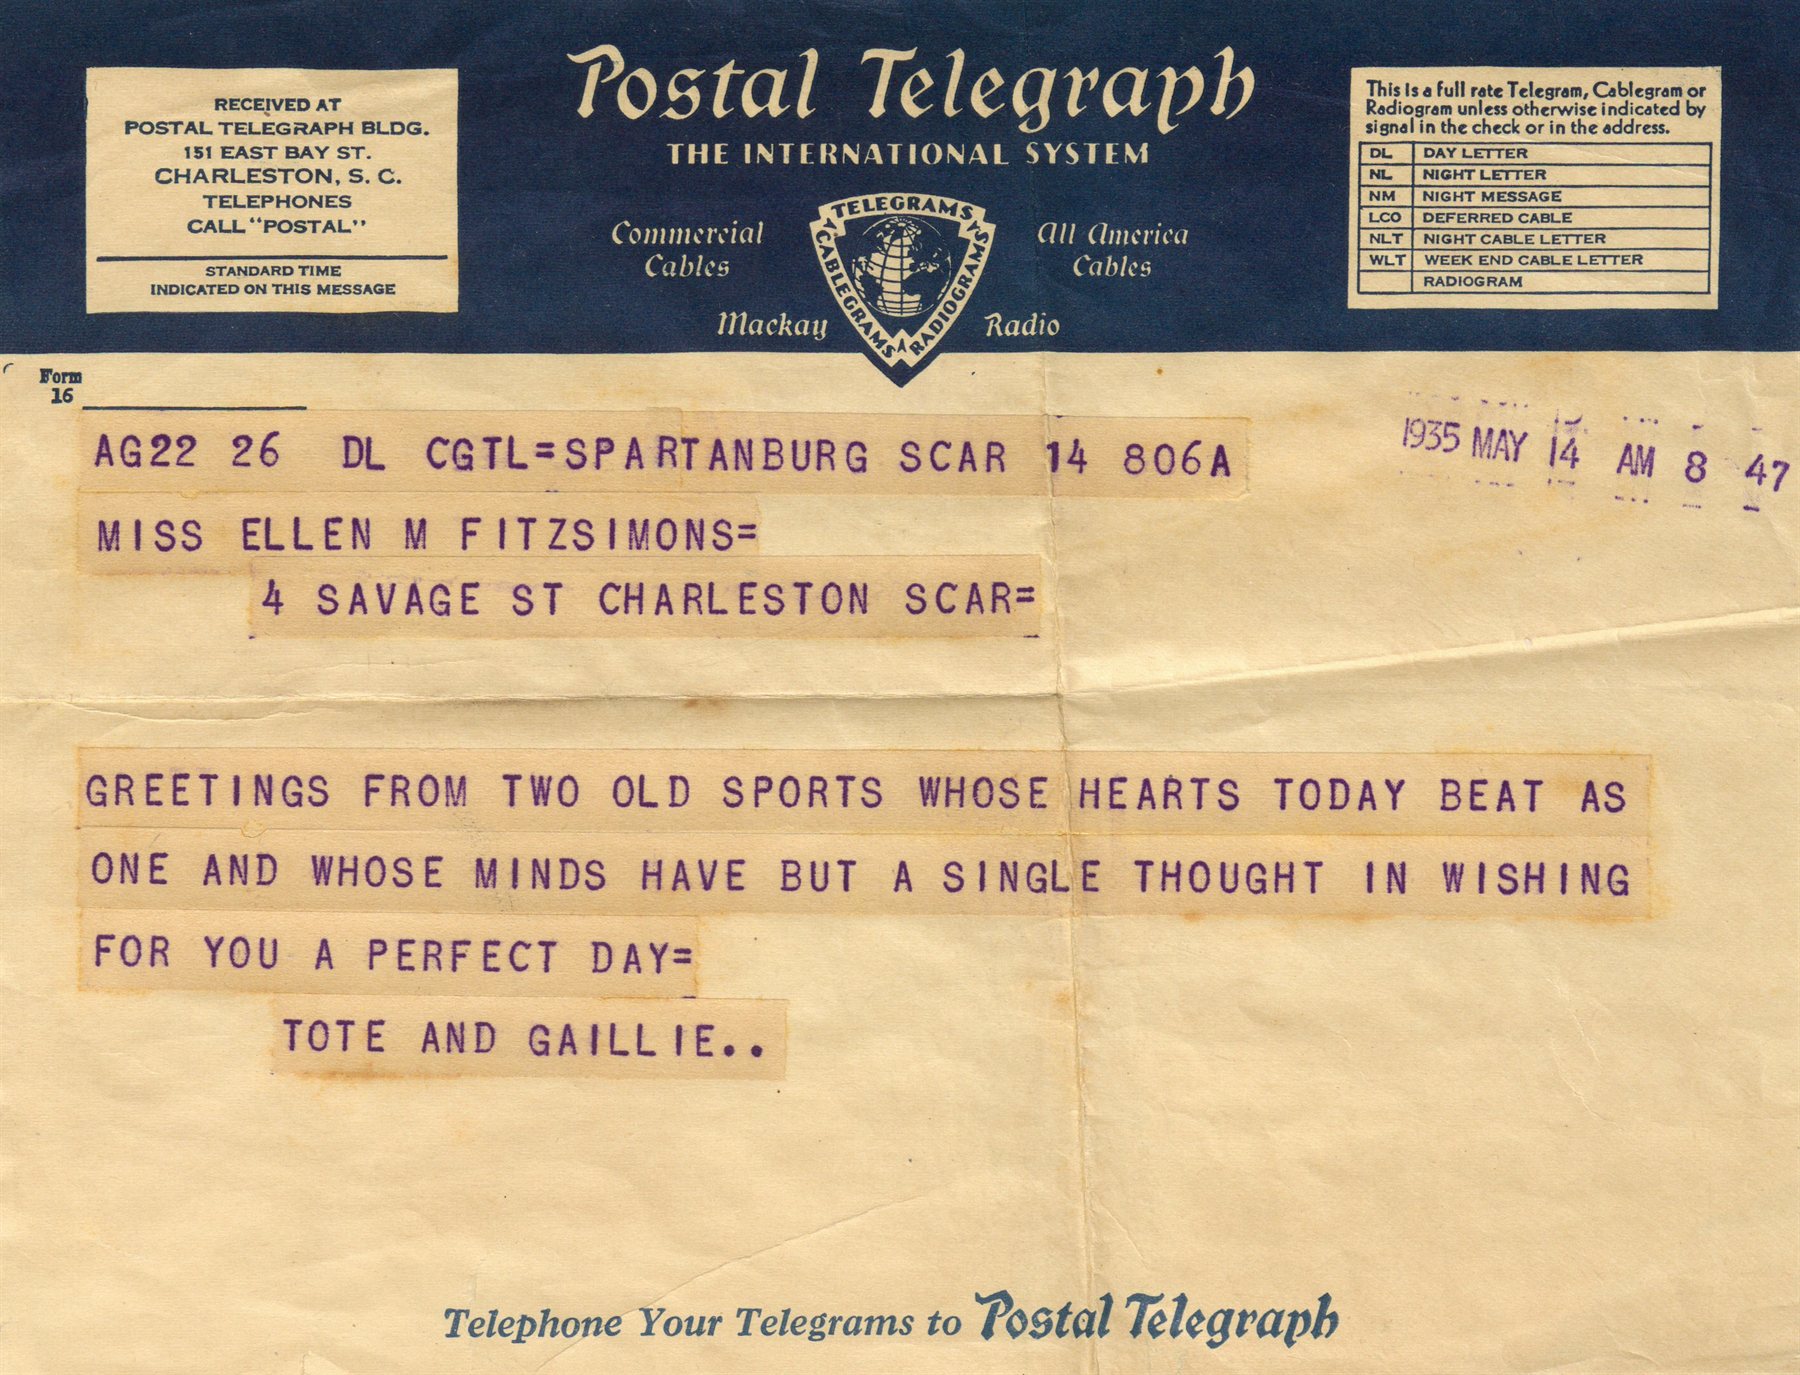 RECEIVED AT
POSTAL TELEGRAPH BLDG.
151 EAST BAY ST.
CHARLESTON, S. C.
TELEPHONES
CALL "POSTAL"
STANDARD TIME
INDICATED ON THIS MESSAGE
Postal Telegraph
THE INTERNATIONAL SYSTEM
Commercial
Cables
All America
Cables
Mackay
Radio
TELEGRAMS
CABLEGRAMS
RADIOGRAMS
This is a full rate Telegram, Cablegram or
Radiogram unless otherwise indicated by
signal in the check or in the address.
DL DAY LETTER
NL NIGHT LETTER
NM NIGHT MESSAGE
LCO DEFERRED CABLE
NLT NIGHT CABLE LETTER
WLT WEEK END CABLE LETTER
RADIOGRAM
Form
16
1935 MAY 14 AM 8 47
AG22 26 DL CGTL=SPARTANBURG SCAR 14 806A
MISS ELLEN M FITZSIMONS=
4 SAVAGE ST CHARLESTON SCAR=
GREETINGS FROM TWO OLD SPORTS WHOSE HEARTS TODAY BEAT AS
ONE AND WHOSE MINDS HAVE BUT A SINGLE THOUGHT IN WISHING
FOR YOU A PERFECT DAY=
TOTE AND GAILLIE..
Telephone Your Telegrams to Postal Telegraph